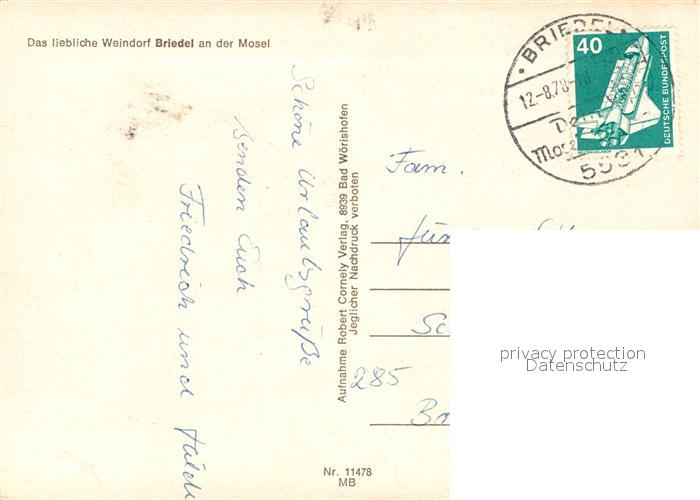 Das liebliche Weindorf Briedel an der Mosel
Schöne Urlaubsgrüße
senden Euch
Friedrich und
Aufnahme Robert Cornely Verlag, 8939 Bad Wörishofen
Jeglicher Nachdruck verboten
Nr. 11478
MB
BRIEDEL
12-8.78-10
5581
40
DEUTSCHE BUNDESPOST
Fam.
285
privacy protection
Datenschutz